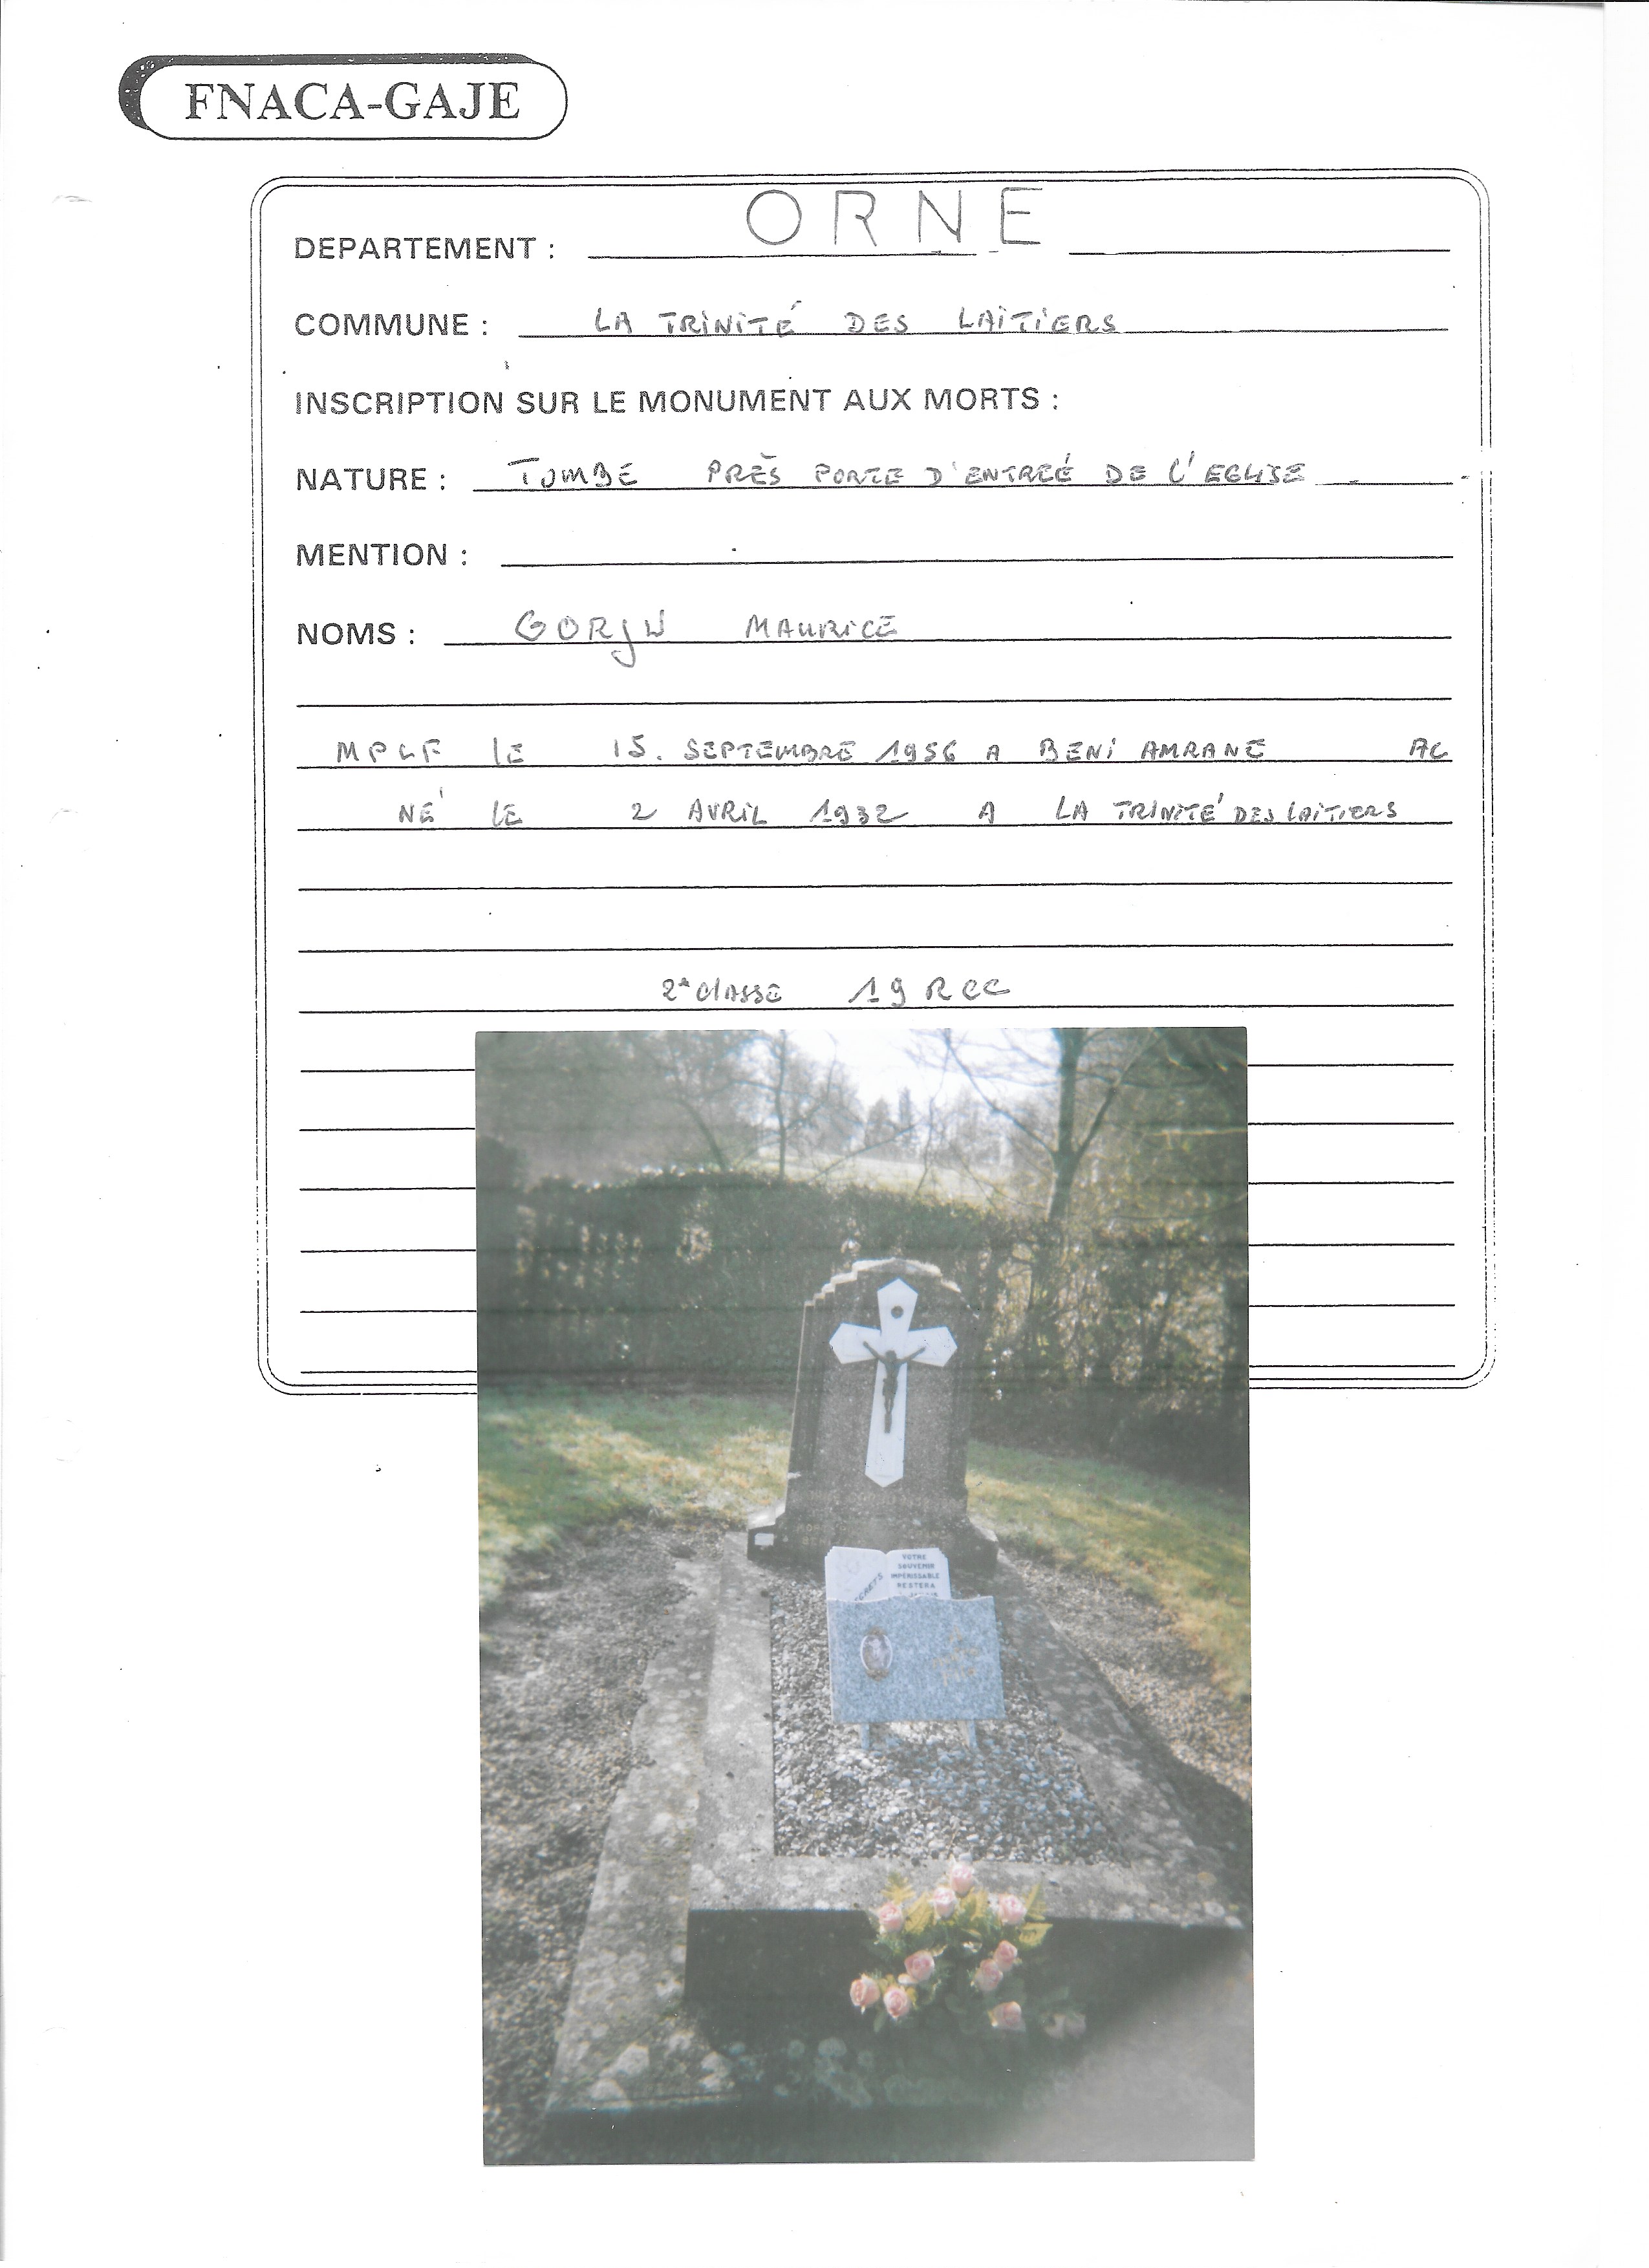 FNACA-GAJE
DEPARTEMENT : ORNE
COMMUNE : LA TRINITÉ DES LAITIERS
INSCRIPTION SUR LE MONUMENT AUX MORTS :
NATURE : TOMBE PRÈS PORTE D'ENTREÉ DE L'EGLISE
MENTION :
NOMS : MAURICE
MPLF LE 15. SEPTEMBRE 1956 A BENI AMRANE
NÉ LE 2 AVRIL 1932 A LA TRINITÉ DES LAITIERS
2e classe 19 RCC
VOTRE
SOUVENIR
IMPÉRISSABLE
RESTERA